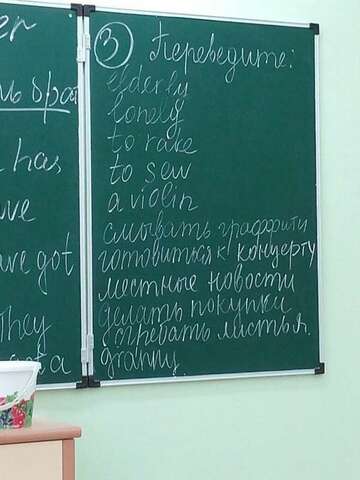 er
3 Переведите:
elderly
lonely
to rake
to sew
a violin
смывать граффити
готовиться к концерту
местные новости
делать покупки
сгребать листья.
granny.
has
ave
ave got
They